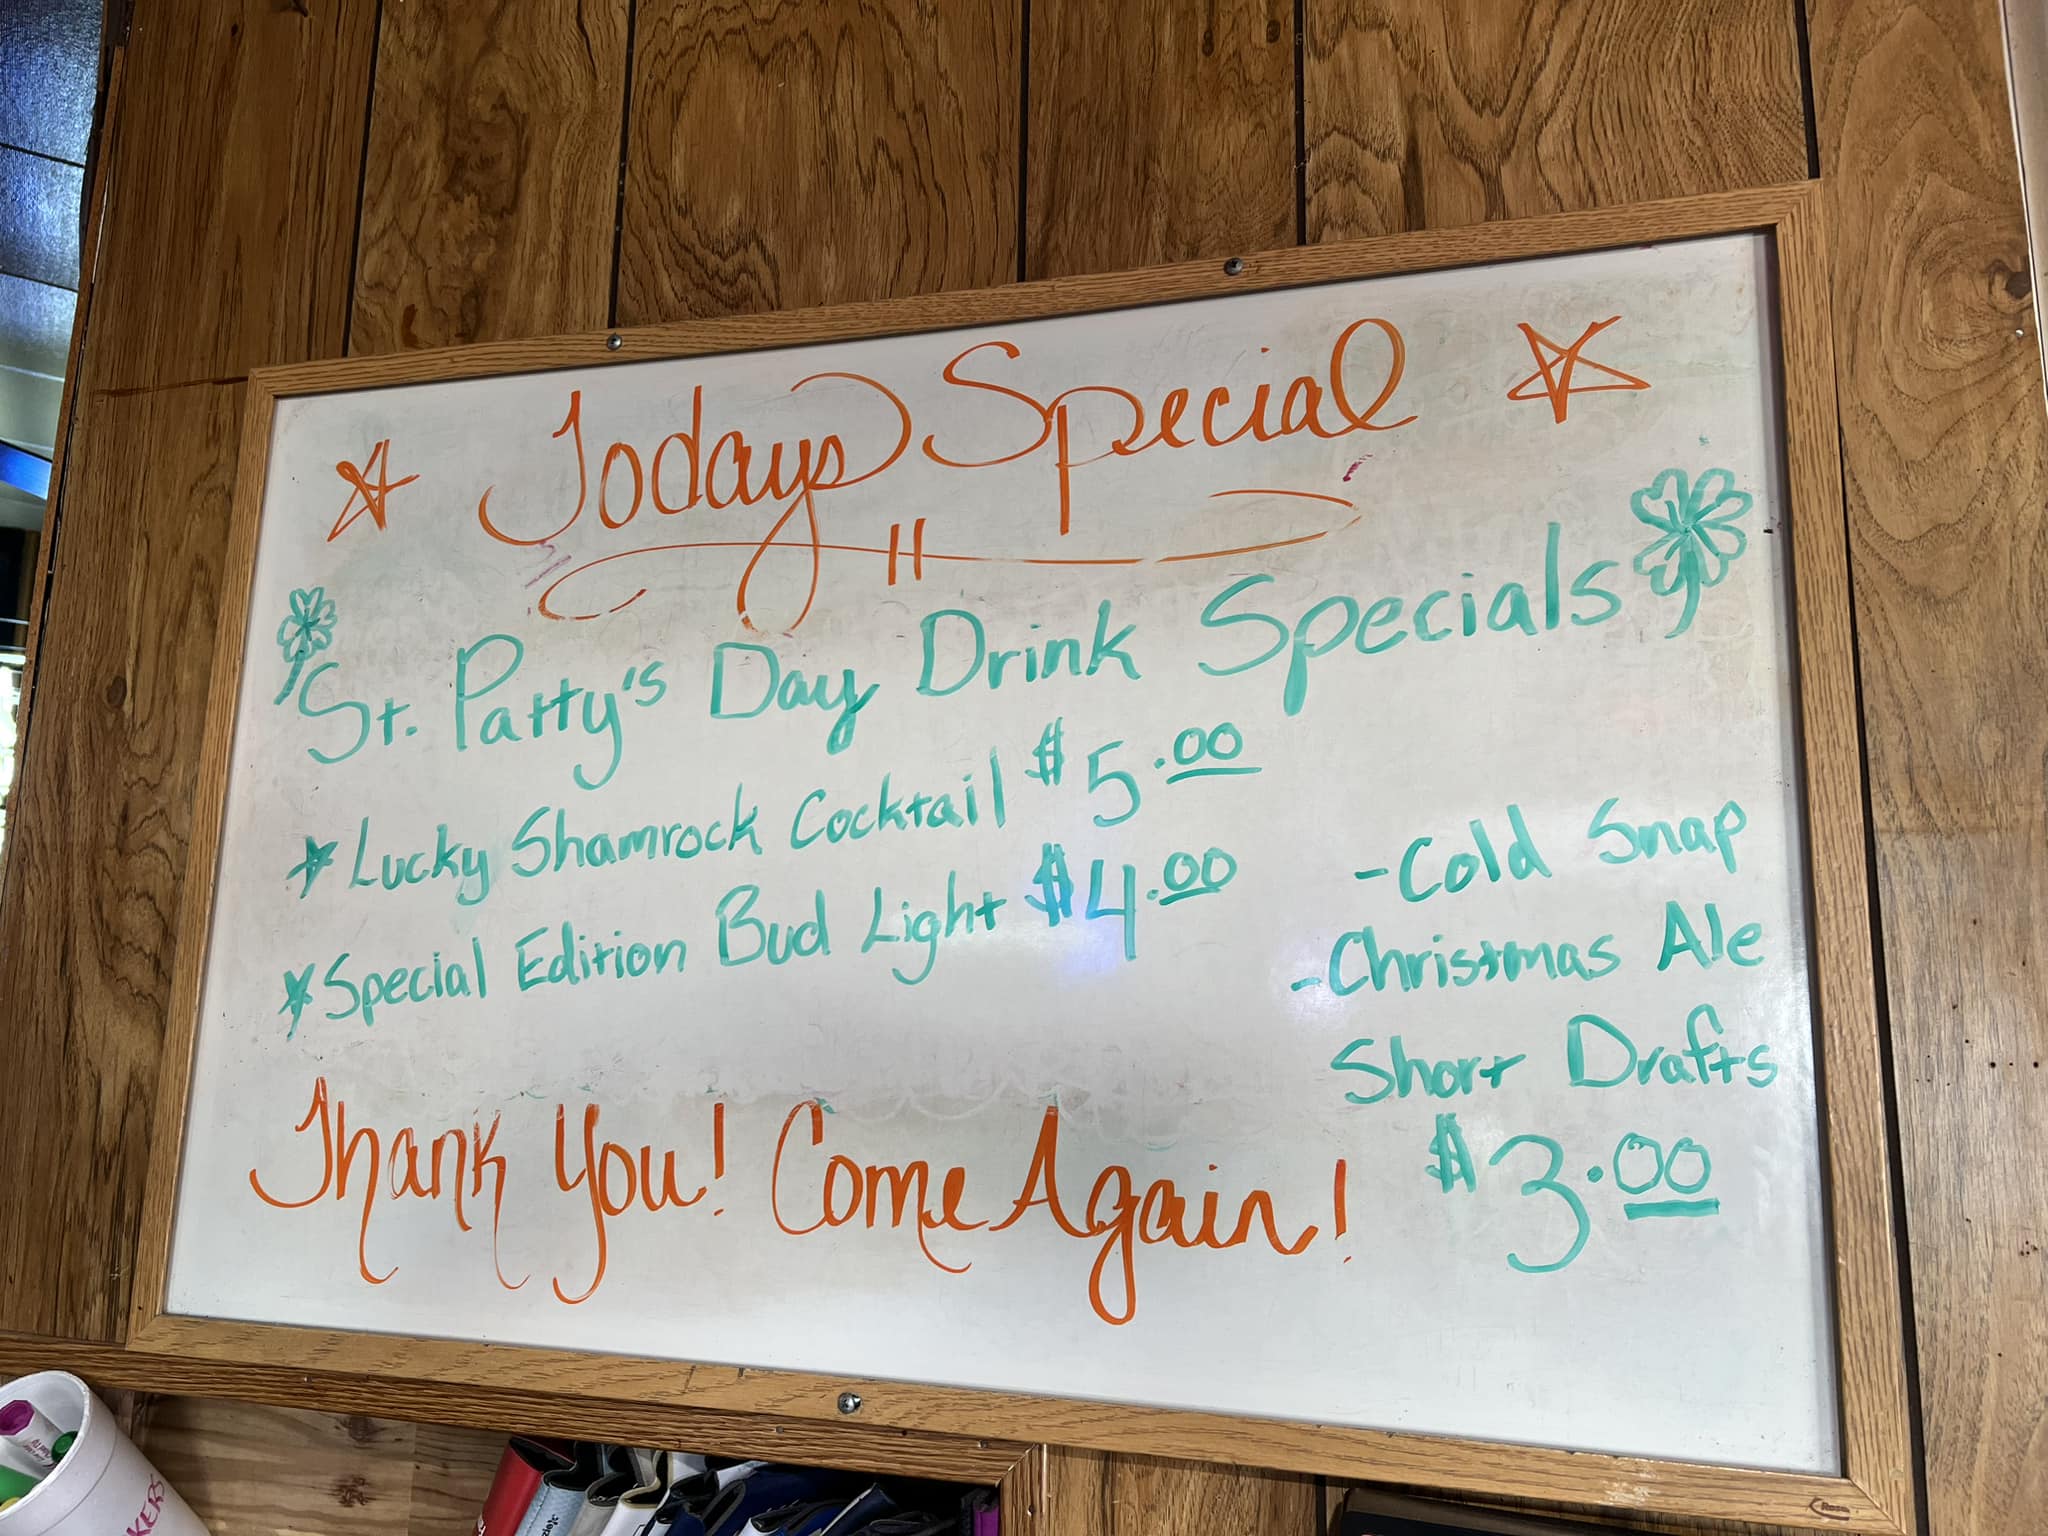 Todays Special
St. Patty's Day Drink Specials
Lucky Shamrock Cocktail $5.00
Special Edition Bud Light $4.00
-Cold Snap
-Christmas Ale
Short Drafts
$3.00
Thank You! Come Again!